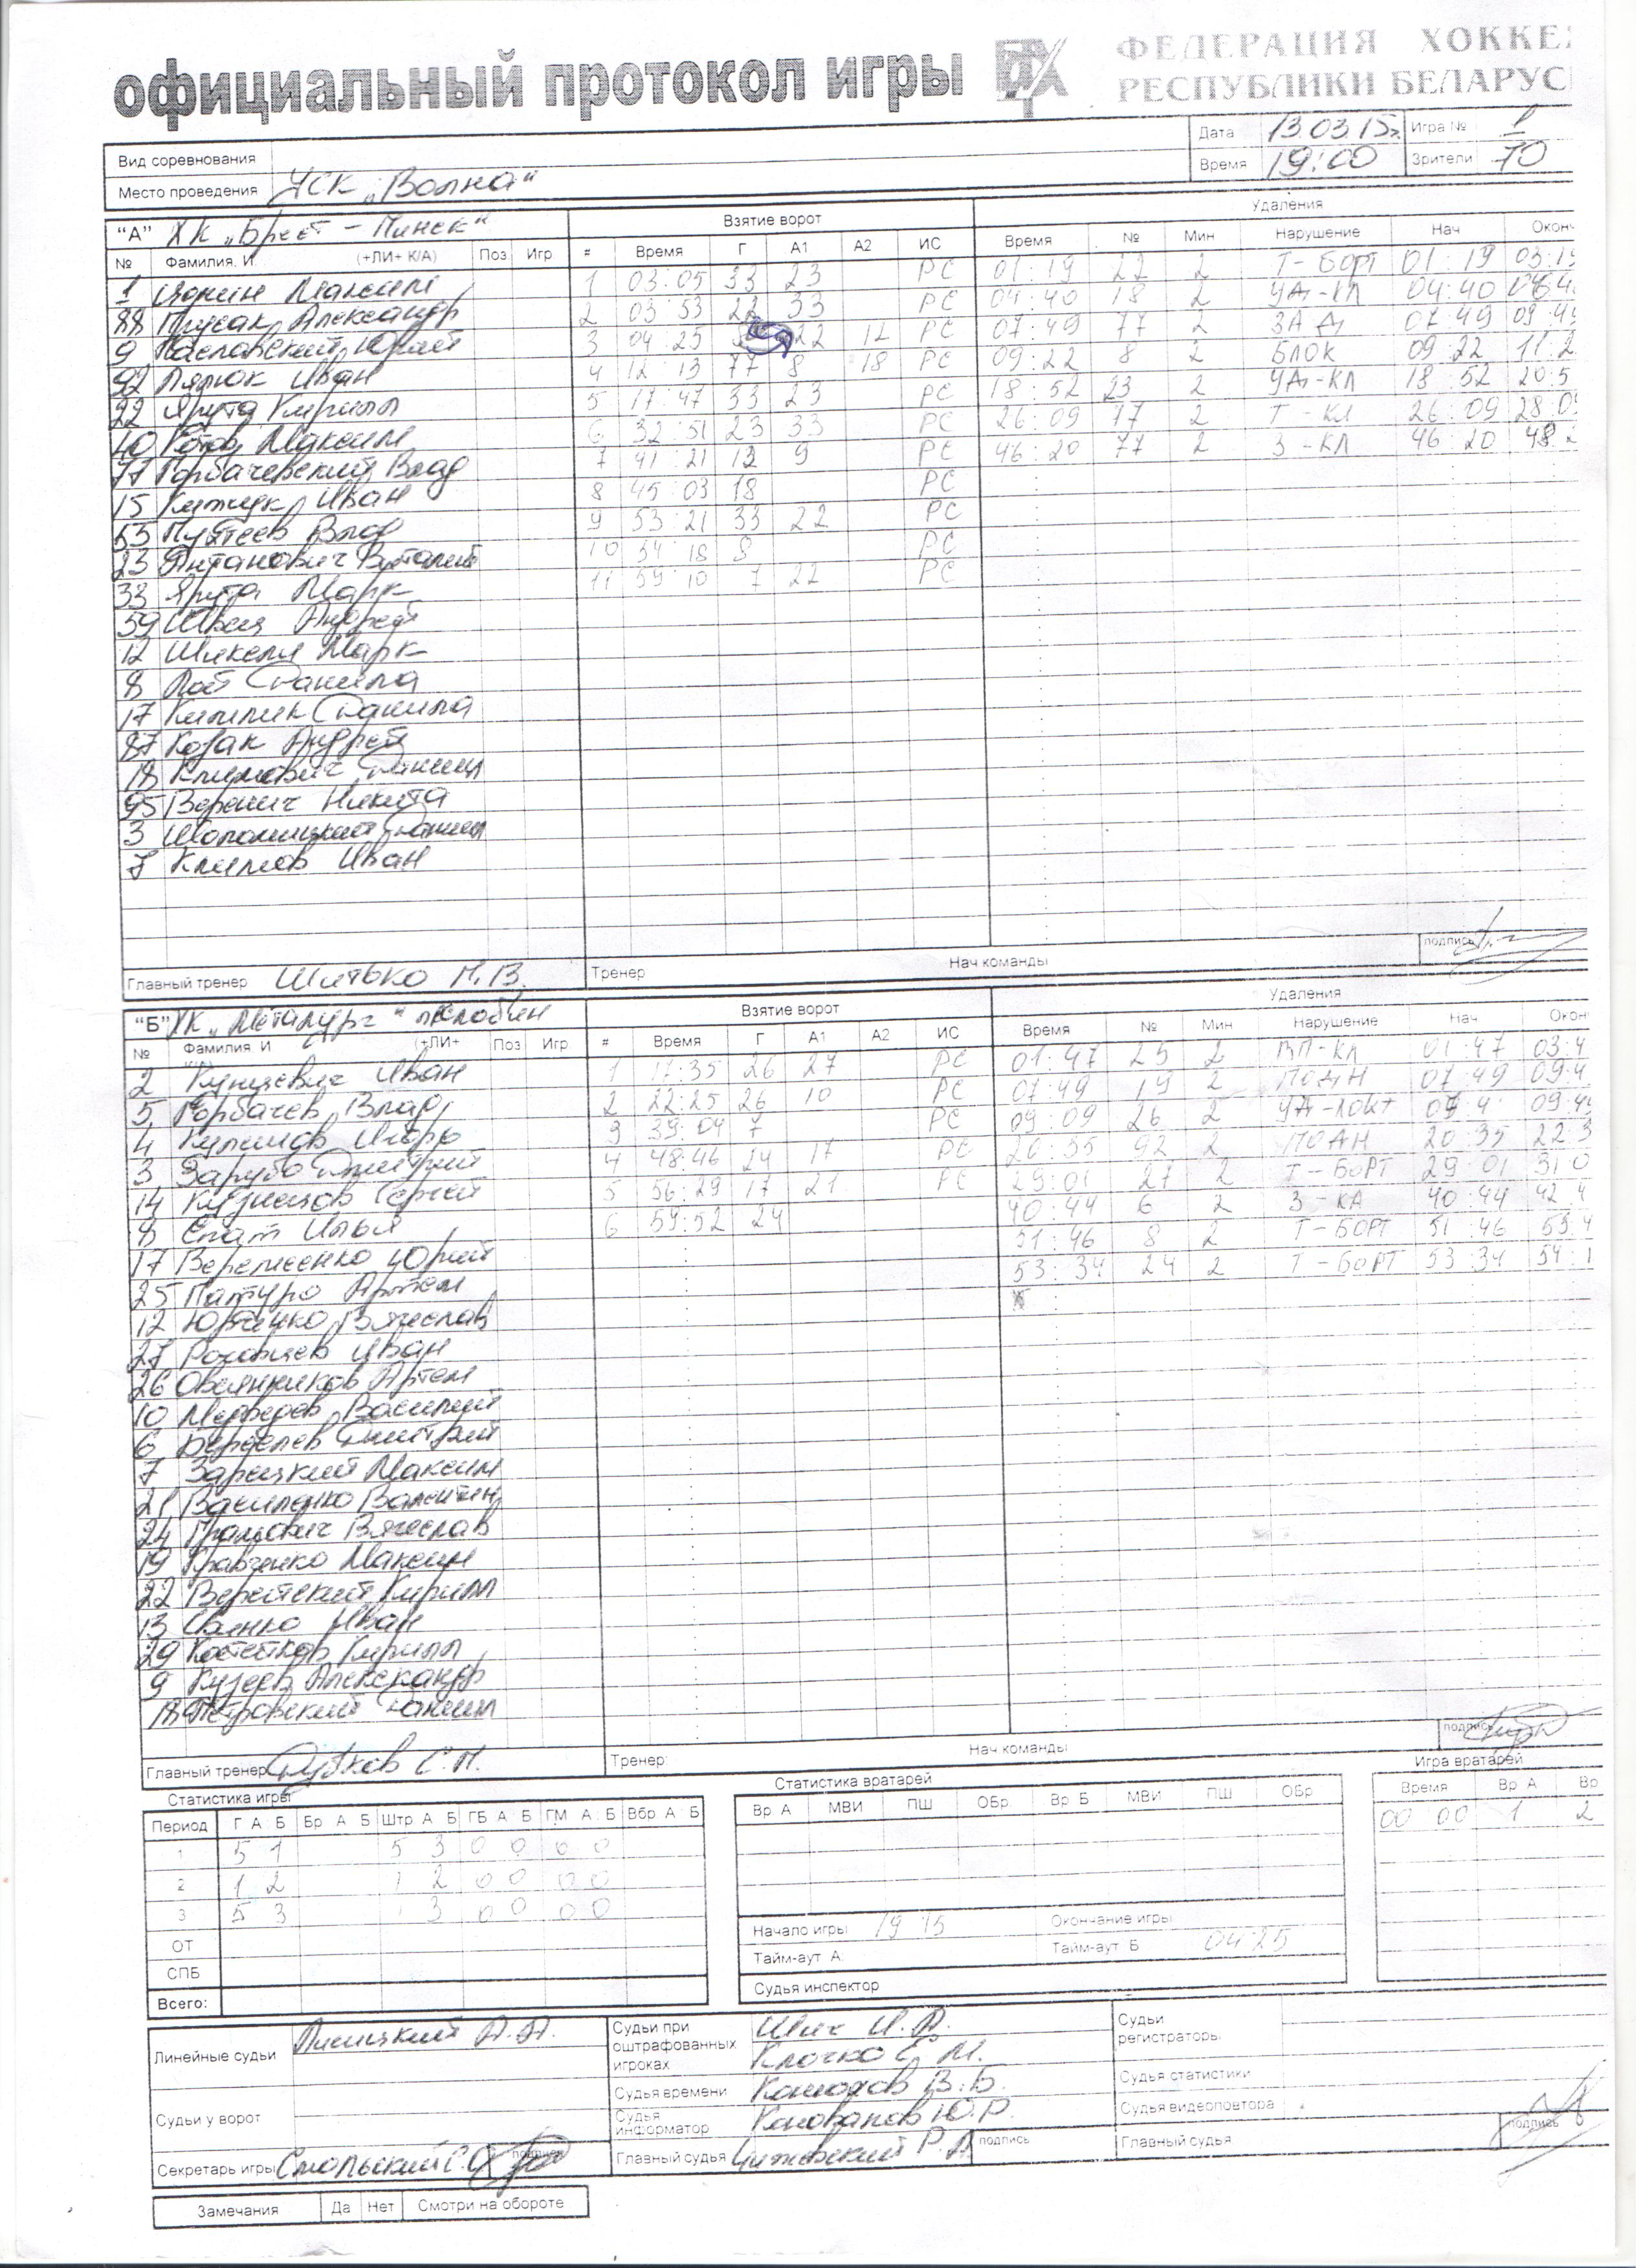 официальный протокол игры
ФЕДЕРАЦИЯ ХОККЕ
РЕСПУБЛИКИ БЕЛАРУС
Вид соревнования
Дата 13.03.15г. Игра № 1
Место проведения УСК „Волна"
Время 19:00 Зрители 70
"А" ХК „Брест - Пинск" Взятие ворот Удаления
№ Фамилия. И (+ЛИ+ К/А) Поз Игр # Время Г А1 А2 ИС Время № Мин Нарушение Нач Оконч
1 Максим 1 03:05 33 23 РС 01:19 22 2 Т-БОРТ 01:19 03:19
88 Прусак Александр 2 03:53 22 33 РС 04:40 18 2 УД-КЛ 04:40
9 Пасловский Юрий 3 04:25 22 12 РС 07:49 77 2 07:49 09:49
92 Лялюк Иван 4 12:13 77 8 18 РС 09:22 8 2 БЛОК 09:22 11:2
22 Ярута Кирилл 5 17:47 33 23 РС 18:52 23 2 УД-КЛ 18:52 20:5
40 Максим 6 32:51 23 33 РС 26:09 77 2 Т-КЛ 26:09 28:09
77 Горбачевский Влад 7 41:21 12 9 РС 46:20 77 2 З-КЛ 46:20 48:2
15 Иван 8 45:03 18 РС
63 Влад 9 53:21 33 22 РС
23 Антанович Виталий 10 54:18 8 РС
33 Ярута Марк 11 59:10 7 22 РС
59 Швец Андрей
12 Шикели Марк
8 Лот Данила
17 Данила
87 Козак Андрей
18 Климович Даниил
95 Веренич Никита
3 Даниил
7 Климов Иван
Главный тренер Шитько М.В. Тренер Нач команды подпись
"Б" ХК „Металург" Жлобин Взятие ворот Удаления
№ Фамилия. И (+ЛИ+ Поз Игр # Время Г А1 А2 ИС Время № Мин Нарушение Нач Окон
2 Кунцевич Иван 1 17:35 26 27 РС 01:47 25 2 ВП-КЛ 01:47 03:4
5 Горбачев Влад 2 22:25 26 10 РС 07:49 19 2 ПОДН 07:49 09:4
4 Игорь 3 39:04 7 РС 09:09 26 2 УД-ЛОКТ 09:4
3 Зарубо Дмитрий 4 48:46 24 17 РС 20:35 92 2 ПОДН 20:35 22:3
14 Кузнецов Сергей 5 56:29 17 21 РС 29:01 27 2 Т-БОРТ 29:01 31:0
8 Спат Илья 6 59:52 24 40:44 6 2 40:44 42:4
17 Веремеенко Юрий 51:46 8 2 Т-БОРТ 51:46 53:4
25 Патуро Артем 53:34 24 2 Т-БОРТ 53:34 54:1
12 Юрченко Вячеслав
27 Иван
26 Овсянников Артем
10 Медведев Василий
6 Дмитрий
7 Зарецкий Максим
21 Василенко Валентин
24 Громович Вячеслав
19 Кравченко Максим
22 Веретский Кирилл
13 Иван
29 Костетков Кирилл
9 Кузеев Александр
18 Петровский Даниил
Главный тренер Дубков С.М. Тренер: Нач команды подпись
Статистика игры Статистика вратарей Игра вратарей
Период Г А Б Бр А Б Штр А Б ГБ А Б ГМ А Б Вбр А Б Вр А МВИ ПШ ОБр Вр Б МВИ ПШ ОБр Время Вр А Вр
00 00 1 2
1 5 1 5 3 0 0 0 0
2 1 2 1 2 0 0 0 0
3 5 3 1 3 0 0 0 0
ОТ
СПБ
Всего:
Начало игры 19 15 Окончание игры
Тайм-аут А Тайм-аут Б 04 25
Судья инспектор
Линейные судьи А.А.
Судьи при оштрафованных игроках Шич И.В.
Клочко Е.М.
Судьи регистраторы
Судья времени Конюхов В.Б.
Судья статистики
Судьи у ворот
Судья информатор Коновалов Ю.Р.
Судья видеоповтора
Секретарь игры Смольский С.О. подпись Главный судья Чижевский Р.А. подпись Главный судья подпись
Замечания Да Нет Смотри на обороте